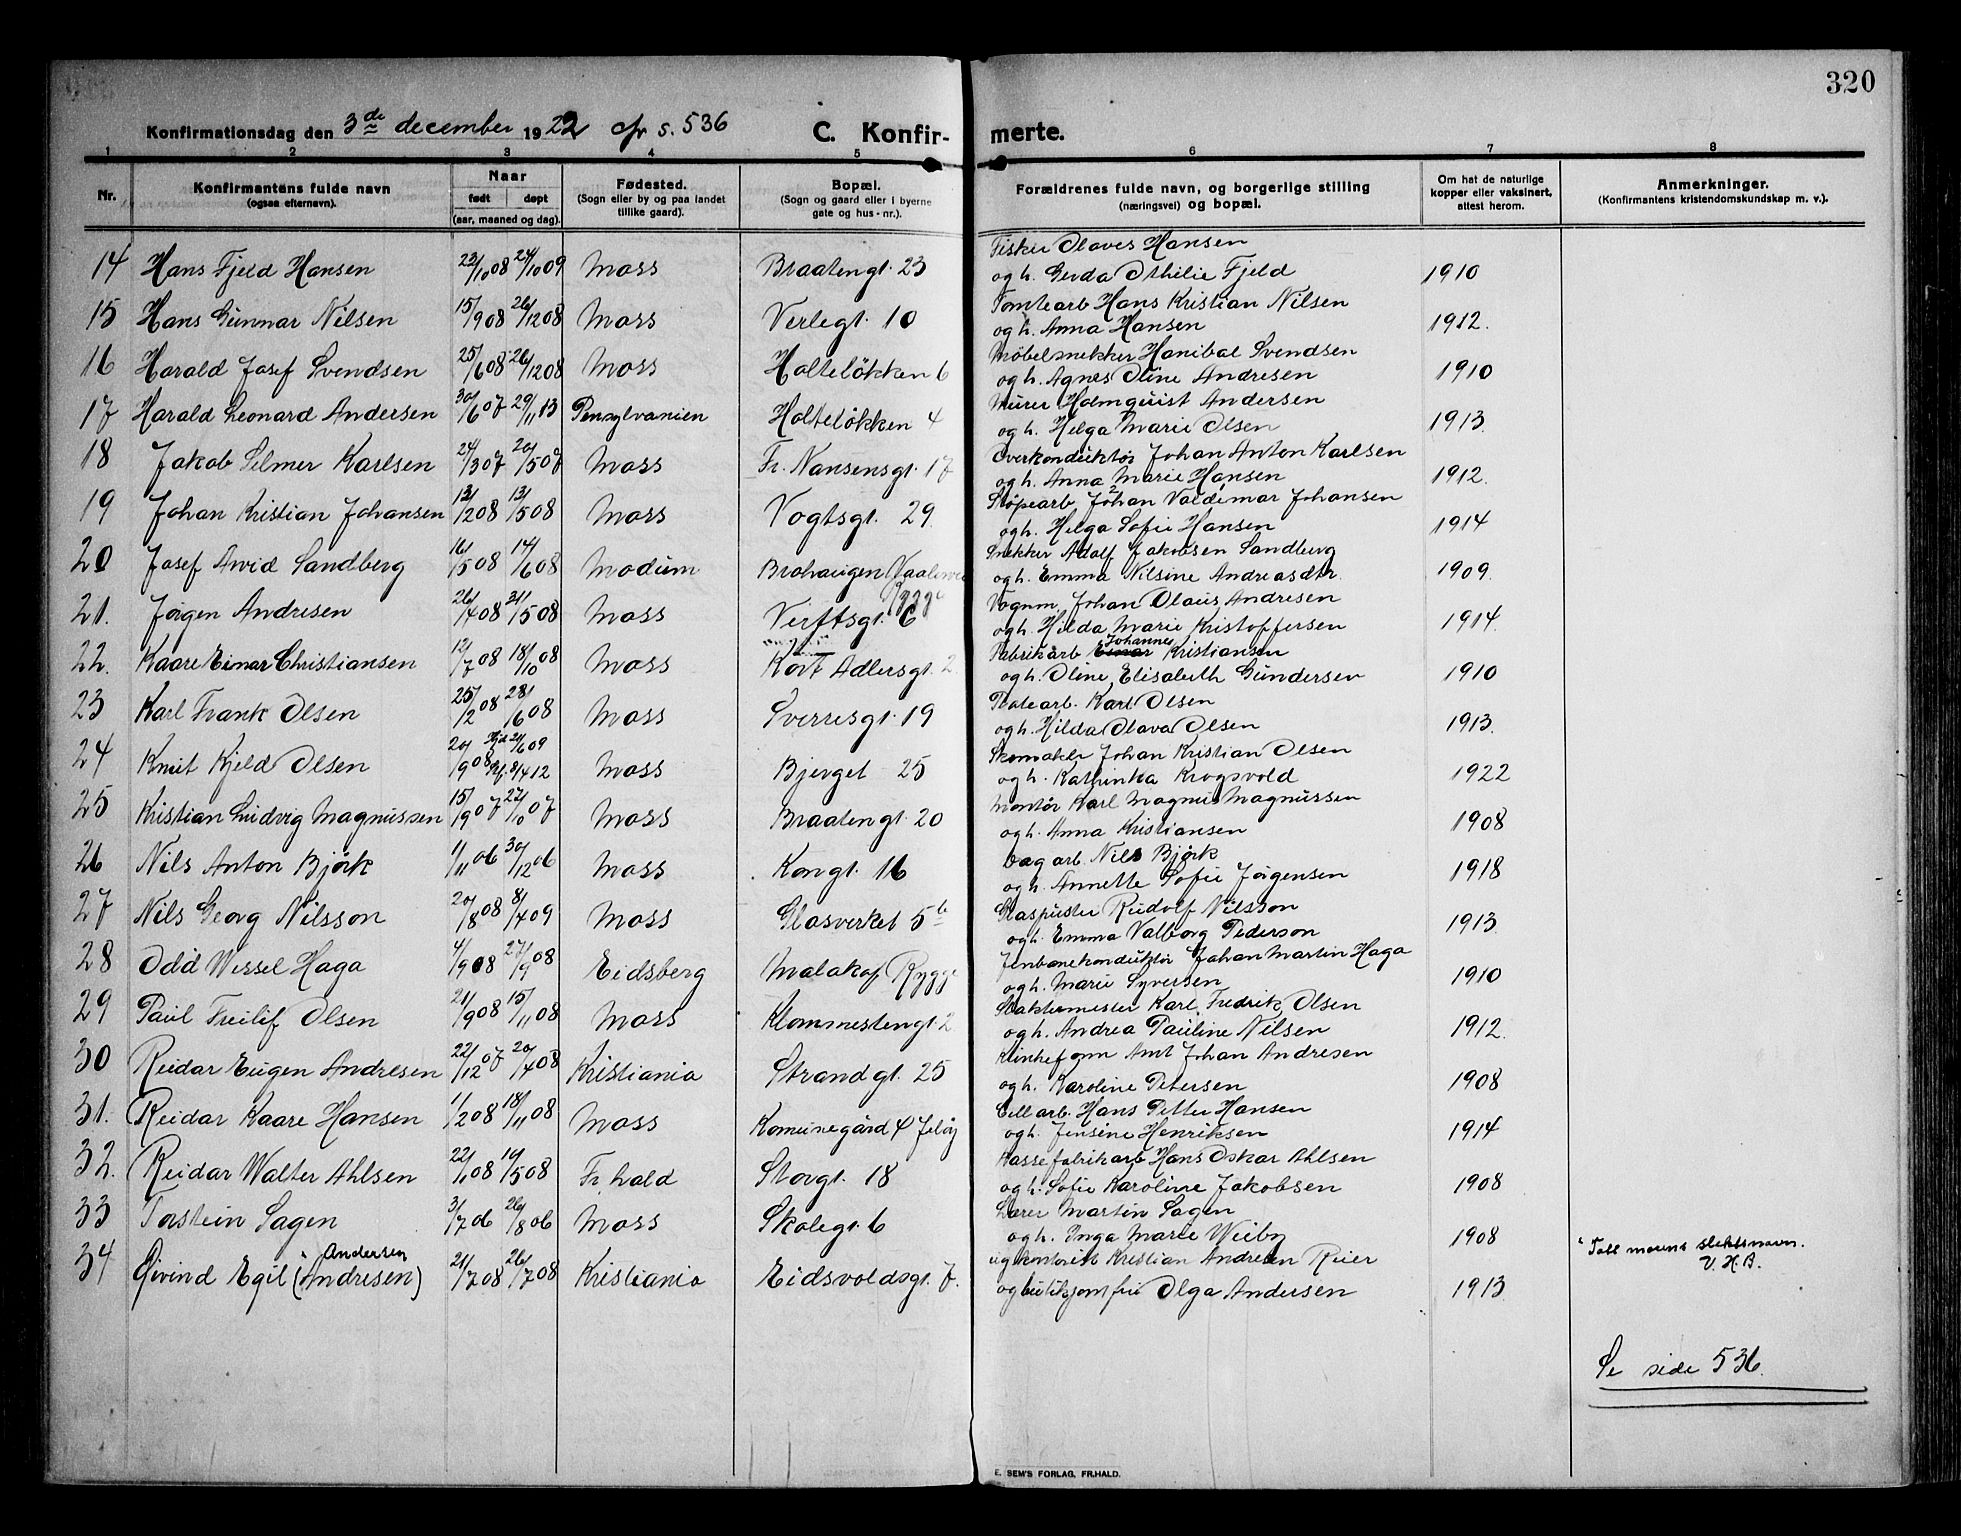 320
Konfirmationsdag den 3de december 1922 cfr s. 536 C. Konfir- merte.
1 2 3 4 5 6 7 8
Nr. Konfirmantens fulde navn (ogsaa efternavn). Naar født døpt (aar, maaned og dag). Fødested. (Sogn eller by og paa landet tillike gaard). Bopæl. (Sogn og gaard eller i byerne gate og hus-nr.). Forældrenes fulde navn, og borgerlige stilling (næringsvei) og bopæl. Om hat de naturlige kopper eller vaksinert, attest herom. Anmerkninger. (Konfirmantens kristendomskundskap m. v.).
14 Hans Fjeld Hansen 23/10 08 24/10 09 Moss Braatengt. 23 Fisker Olaves Hansen
og h. Gerda Othilie Fjeld 1910
15 Hans Gunnar Nilsen 15/9 08 26/12 08 Moss Verlegt. 10 Tomtearb Hans Kristian Nilsen
og h. Anna Hansen 1912.
16 Harald Josef Svendsen 25/6 08 26/12 08 Moss Holteløkken 6 Møbelsnekker Hanibal Svendsen
og h. Agnes Oline Andresen 1910
17 Harald Leonard Andersen 30/6 07 29/11 13 Pensylvanien Holteløkken 4 Murer Holmquist Andersen
og h. Helga Marie Olsen 1913
18 Jakob Selmer Karlsen 24/3 07 20/5 07 Moss Fr. Nansensgt. 17 Overkonduktør Johan Anton Karlsen
og h. Anna Marie Hansen 1912.
19 Johan Kristian Johansen 12/12 08 13/5 08 Moss Vogtsgt. 29 Støpearb Johan Valdemar Johansen
og h. Helga Sofie Hansen 1914
20 Josef Arvid Sandberg 16/5 08 14/6 08 Modum Brohaugen Rygge Snekker Adolf Jakobsen Sandberg
og h. Emma Nilsine Andreasdtr. 1909.
21. Jørgen Andresen 26/4 08 31/5 08 Moss Verftsgt. 6 Vognm. Johan Olaus Andresen
og h. Hilda Marie Kristoffersen 1914.
22. Kaare Einar Christiansen 12/7 08 18/10 08 Moss Kort Adlersgt. 2 Fabrikarb Einar Johannes Kristiansen
og h. Oline Elisabeth Gundersen 1910
23 Karl Frank Olsen 25/2 08 28/6 08 Moss Sverresgt. 19 Platearb. Karl Olsen
og h. Hilda Olava Olsen 1913.
24 Knut Kjeld Olsen 20/9 08 Hjd 21/6 09 8/4 12 Moss Bjerget 25 Skomaker Johan Kristian Olsen
og h. Kathinka Krogsvold 1922
25 Kristian Ludvig Magnussen 15/9 07 27/10 07 Moss Braatengt. 20 Montør Karl Magnus Magnussen
og h. Anna Kristiansen 1908
26 Nils Anton Bjørk 11/11 06 30/12 06 Moss Kongt. 16 Dagarb. Nils Bjørk
og h. Annette Sofie Jørgensen 1918
27 Nils Georg Nilsson 20/8 08 8/4 09 Moss Glasverket 5b Glaspuster Rudolf Nilsson
og h. Emma Valborg Pederson 1913.
28 Odd Wessel Haga 4/9 08 27/9 08 Eidsberg Malakof Rygge Jernbanekonduktør Johan Martin Haga
og h. Marie Syversen 1910
29 Paul Freilif Olsen 21/9 08 15/11 08 Moss Klommestengt 2 Slaktermester Karl Fredrik Olsen
og h. Andrea Pauline Nilsen 1912.
30 Reidar Eugen Andresen 22/12 07 20/4 08 Kristiania Strandgt. 25 Amt Johan Andresen
og h. Karoline Petersen 1908
31. Reidar Kaare Hansen 11/2 08 18/11 08 Moss Komunegård 4 Jeløy Cellarb. Hans Petter Hansen
og h. Jensine Henriksen 1914
32. Reidar Walter Ahlsen 22/1 08 10/5 08 Fr.hald Storgt. 18 Kassefabrikarb Hans Oskar Ahlsen
og h. Sofie Karoline Jakobsen 1908
33 Torstein Sagen 3/7 06 26/8 06 Moss Skolegt. 6 Lærer Martin Sagen
og h. Inga Marie Weiby 1908
34 Øivind Egil (Andresen) Andersen 21/7 08 26/7 08 Kristiania Eidsvoldsgt. 7. ugkontorist Kristian Andresen Reier
og butikjomfru Olga Andersen 1913
morens slektsnavn.
V. H. B.
Se side 536.
E. SEM'S FORLAG, FR.HALD.